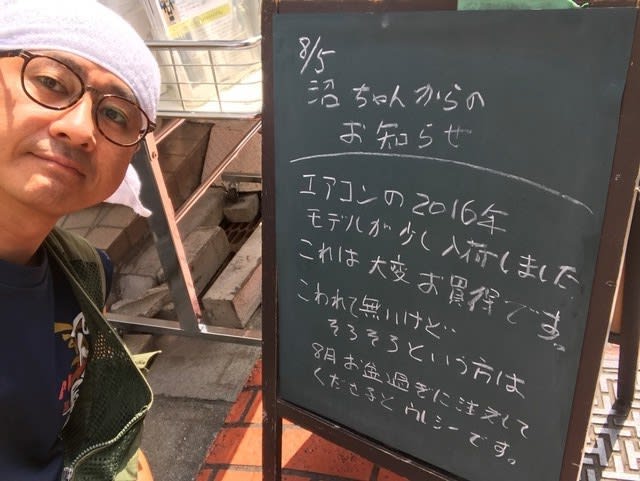 8/5
沼ちゃんからの
お知らせ
エアコンの2016年
モデルが少し入荷しました
これは大変お買得です。
こわれて無いけど‥
そろそろという方は
8月お盆過ぎに注文して
くださるとウレシーです。